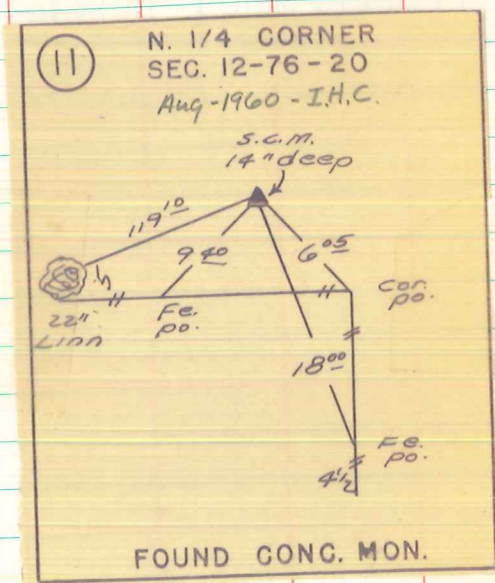 11
N. 1/4 CORNER
SEC. 12-76-20
Aug-1960-I.H.C.
S.C.M.
14" deep
119 10
9 40
6 05
22"
Linn
Fe.
po.
Cor.
po.
18 00
Fe.
po.
4 1/2
FOUND CONC. MON.